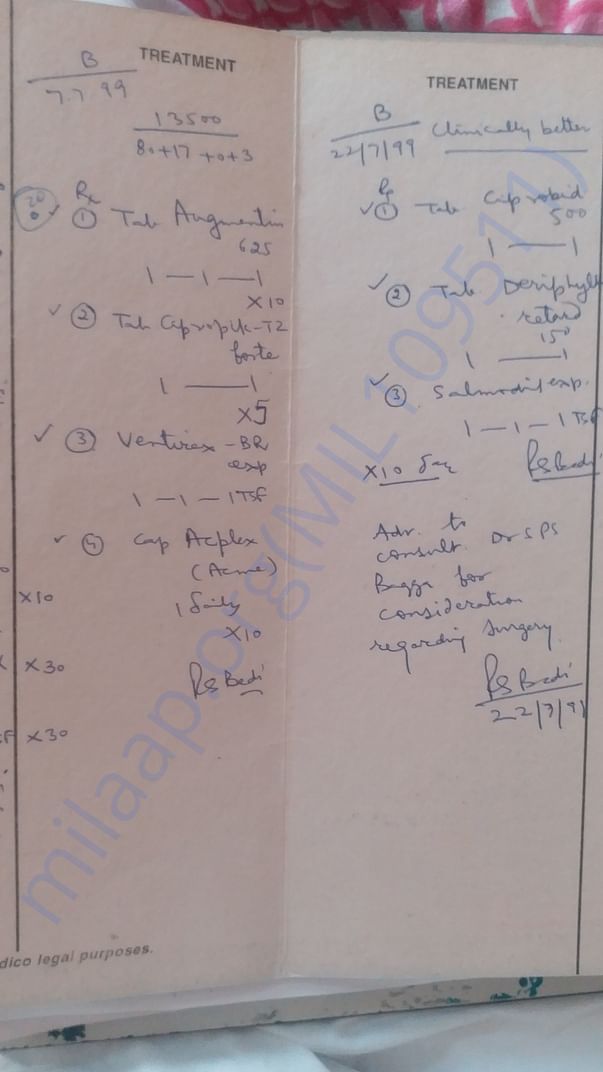 TREATMENT
B
7.7.99
13500
80+17+0+3
Rx
① Tab Augmentin
625
1 — 1 — 1
X10
② Tab
forte
1 —— 1
X5
③ Ventirex - BR
exp
1 — 1 — 1 TSF
④ Cap Acplex
(Acme)
1 daily
X10
RS Bedi
X10
X30
X30
dico legal purposes.
TREATMENT
B
22/7/99 Clinically better
Rx
① Tab Ciprobid
500
1 —— 1
② Tab Deriphyll
retard
150
1 —— 1
③ Salmodil exp.
1 — 1 — 1 TSF
X10 day RS Bedi
Adv. to
consult. Dr SPS
Bagga for
consideration
regarding surgery.
RS Bedi
22/7/99
milaap.org(MIL110951)